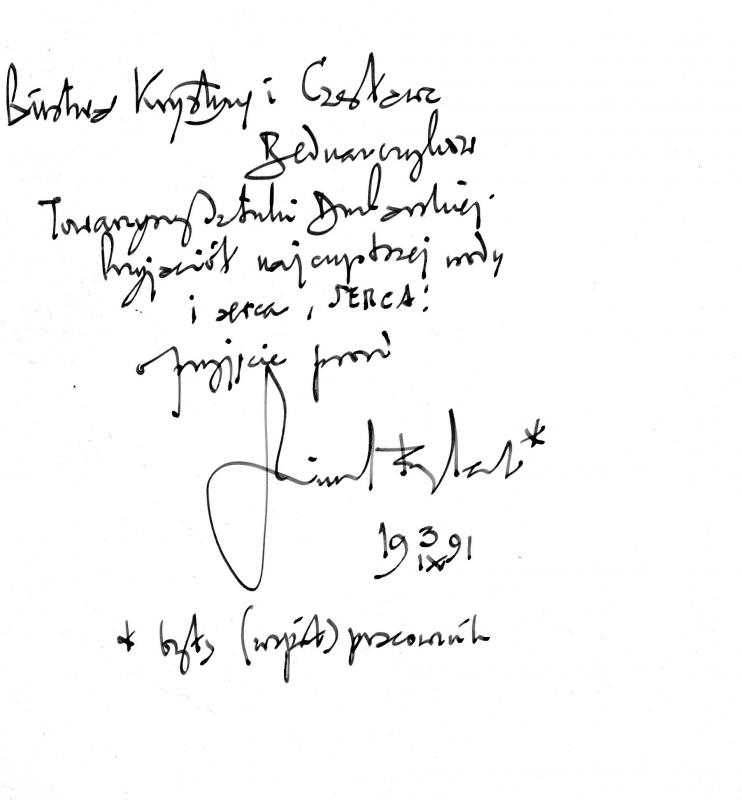 Bóstwa Krystyny i Czesława
Bednarczyków
Towarzyszy Sztuki Drukarskiej
Przyjaciół najczystszej wody
i serca, SERCA!
o przyjęcie prosi
*
19 3 IX 91
* były (współ) pracownik